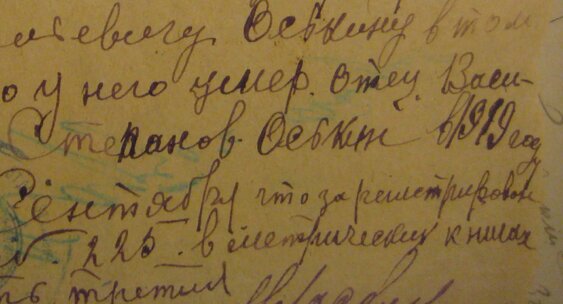 севичу Оськину в том
о у него умер. отец. Васи-
Степанов. Оськин в 1919 году
Сентября что зарегистрирован
№. 225. в метрических книгах
ть третия